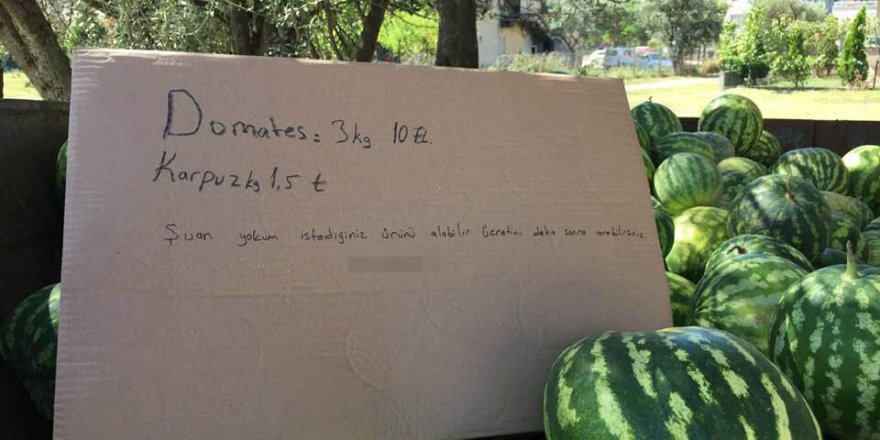 Domates: 3kg 10 TL.
Karpuz kg 1,5 t
Şuan yokum istediğiniz ürünü alabilir ücretini daha sonra verebilirsiniz